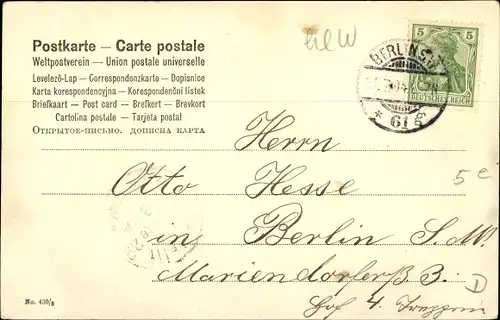 Postkarte — Carte postale
Weltpostverein — Union postale universelle
Levelező-Lap — Correspondenzkarte — Dopisnice
Karta korespondencyjna — Korespondenční listek
Briefkaart — Post card — Brefkort — Brevkort
Cartolina postale — Tarjeta postal
Открытое письмо. дописна карта
5 5
DEUTSCHES REICH
BERLIN S.W.
* 61
Herrn
Otto Hesse
5 e
in Berlin S. W.
Mariendorferstr. 3.
Hof 4. Treppen
D
No. 430/8